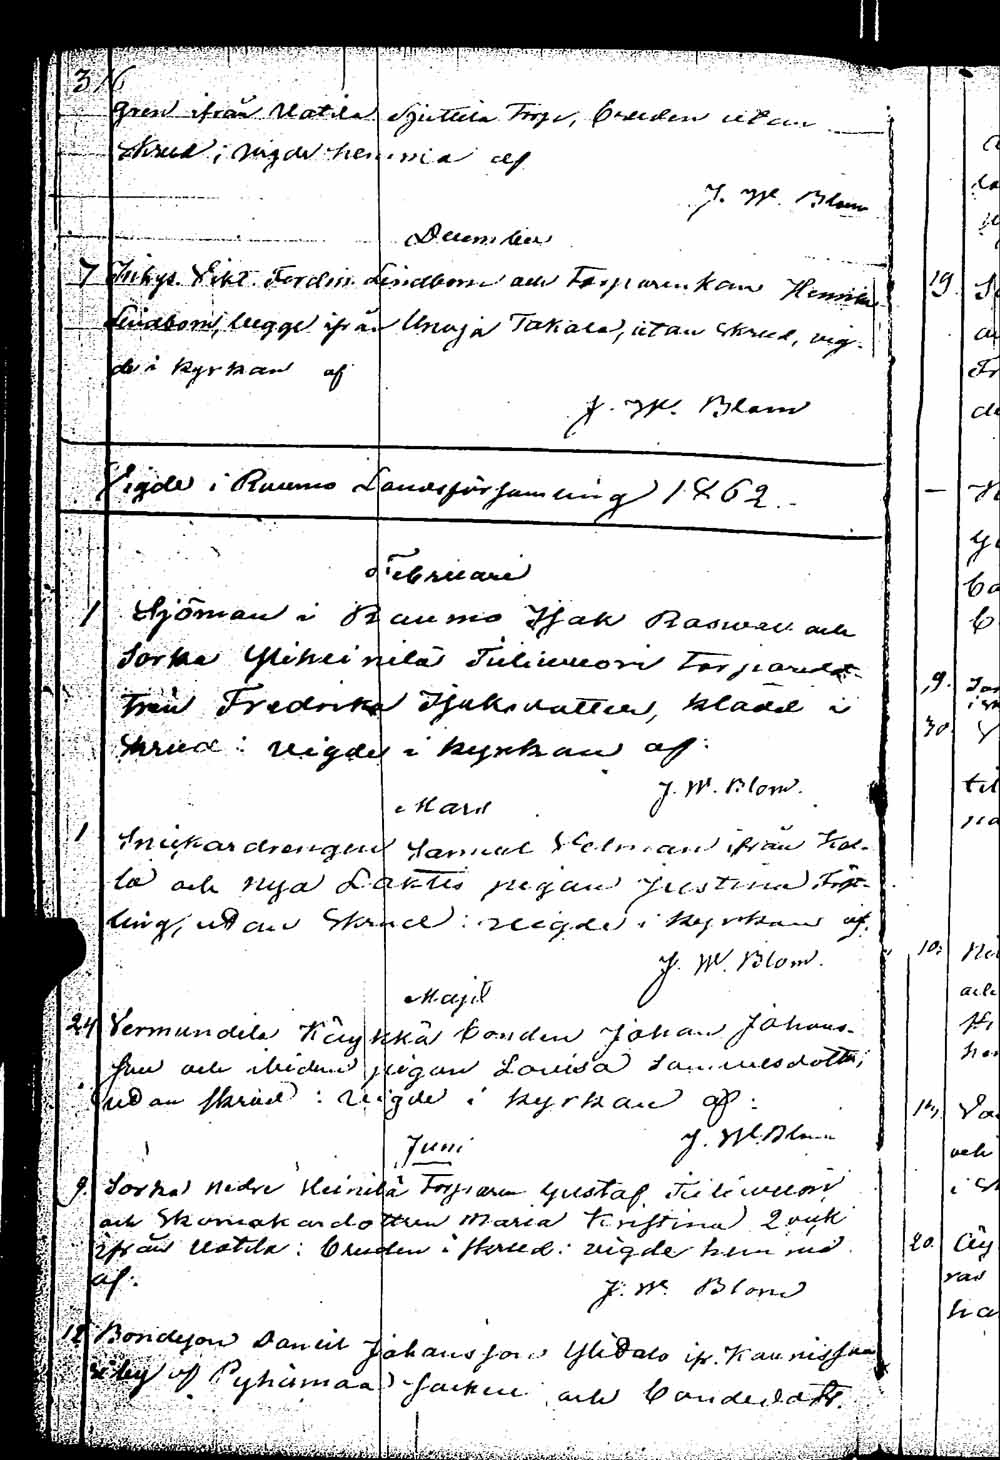 316
gren ifrån Uotila Sjuttila Torp, bruden utan
skrud; vigde hemma af
J. W. Blom
December
7 Inhys. Vikt. Ferdin. Lindbom och Torparenkan Henrika
Lindbom, begge ifrån Unaja Takala, utan skrud, vig-
de i kyrkan af
J. W. Blom
Vigde i Raumo Landsförsamling 1862.
Februari
1 Sjöman i Raumo Isak Rasmus och
Sorka Yliheinilä Tuliwuori Torparedot-
tren Fredrika Isaksdotter, klädd i
skrud: vigde i kyrkan af:
J. W. Blom.
Mars
1 Snickardrengen Samuel Velman ifrån Kol-
la och nya Laktis pigan Justina
ling, utan skrud: vigde i kyrkan af:
J. W. Blom.
Maji
24 Vermundila Käykkä bonden Johan Johans-
son och ibidem pigan Lovisa Samuelsdotter,
utan skrud: vigde i kyrkan af:
J. W. Blom
Juni
9. Sorka nedre Heinilä Torparen Gustaf Tuliwuori
och Skomakardottren Maria Kristina
ifrån Uotila: bruden i skrud: vigde hemma
af:
J. W. Blom
12 Bondeson Daniel Johansson Ylitalo ifr. Kaunissaari
by af Pyhämaa Socken och bondedott.
19.
9.
30.
10.
14.
20.